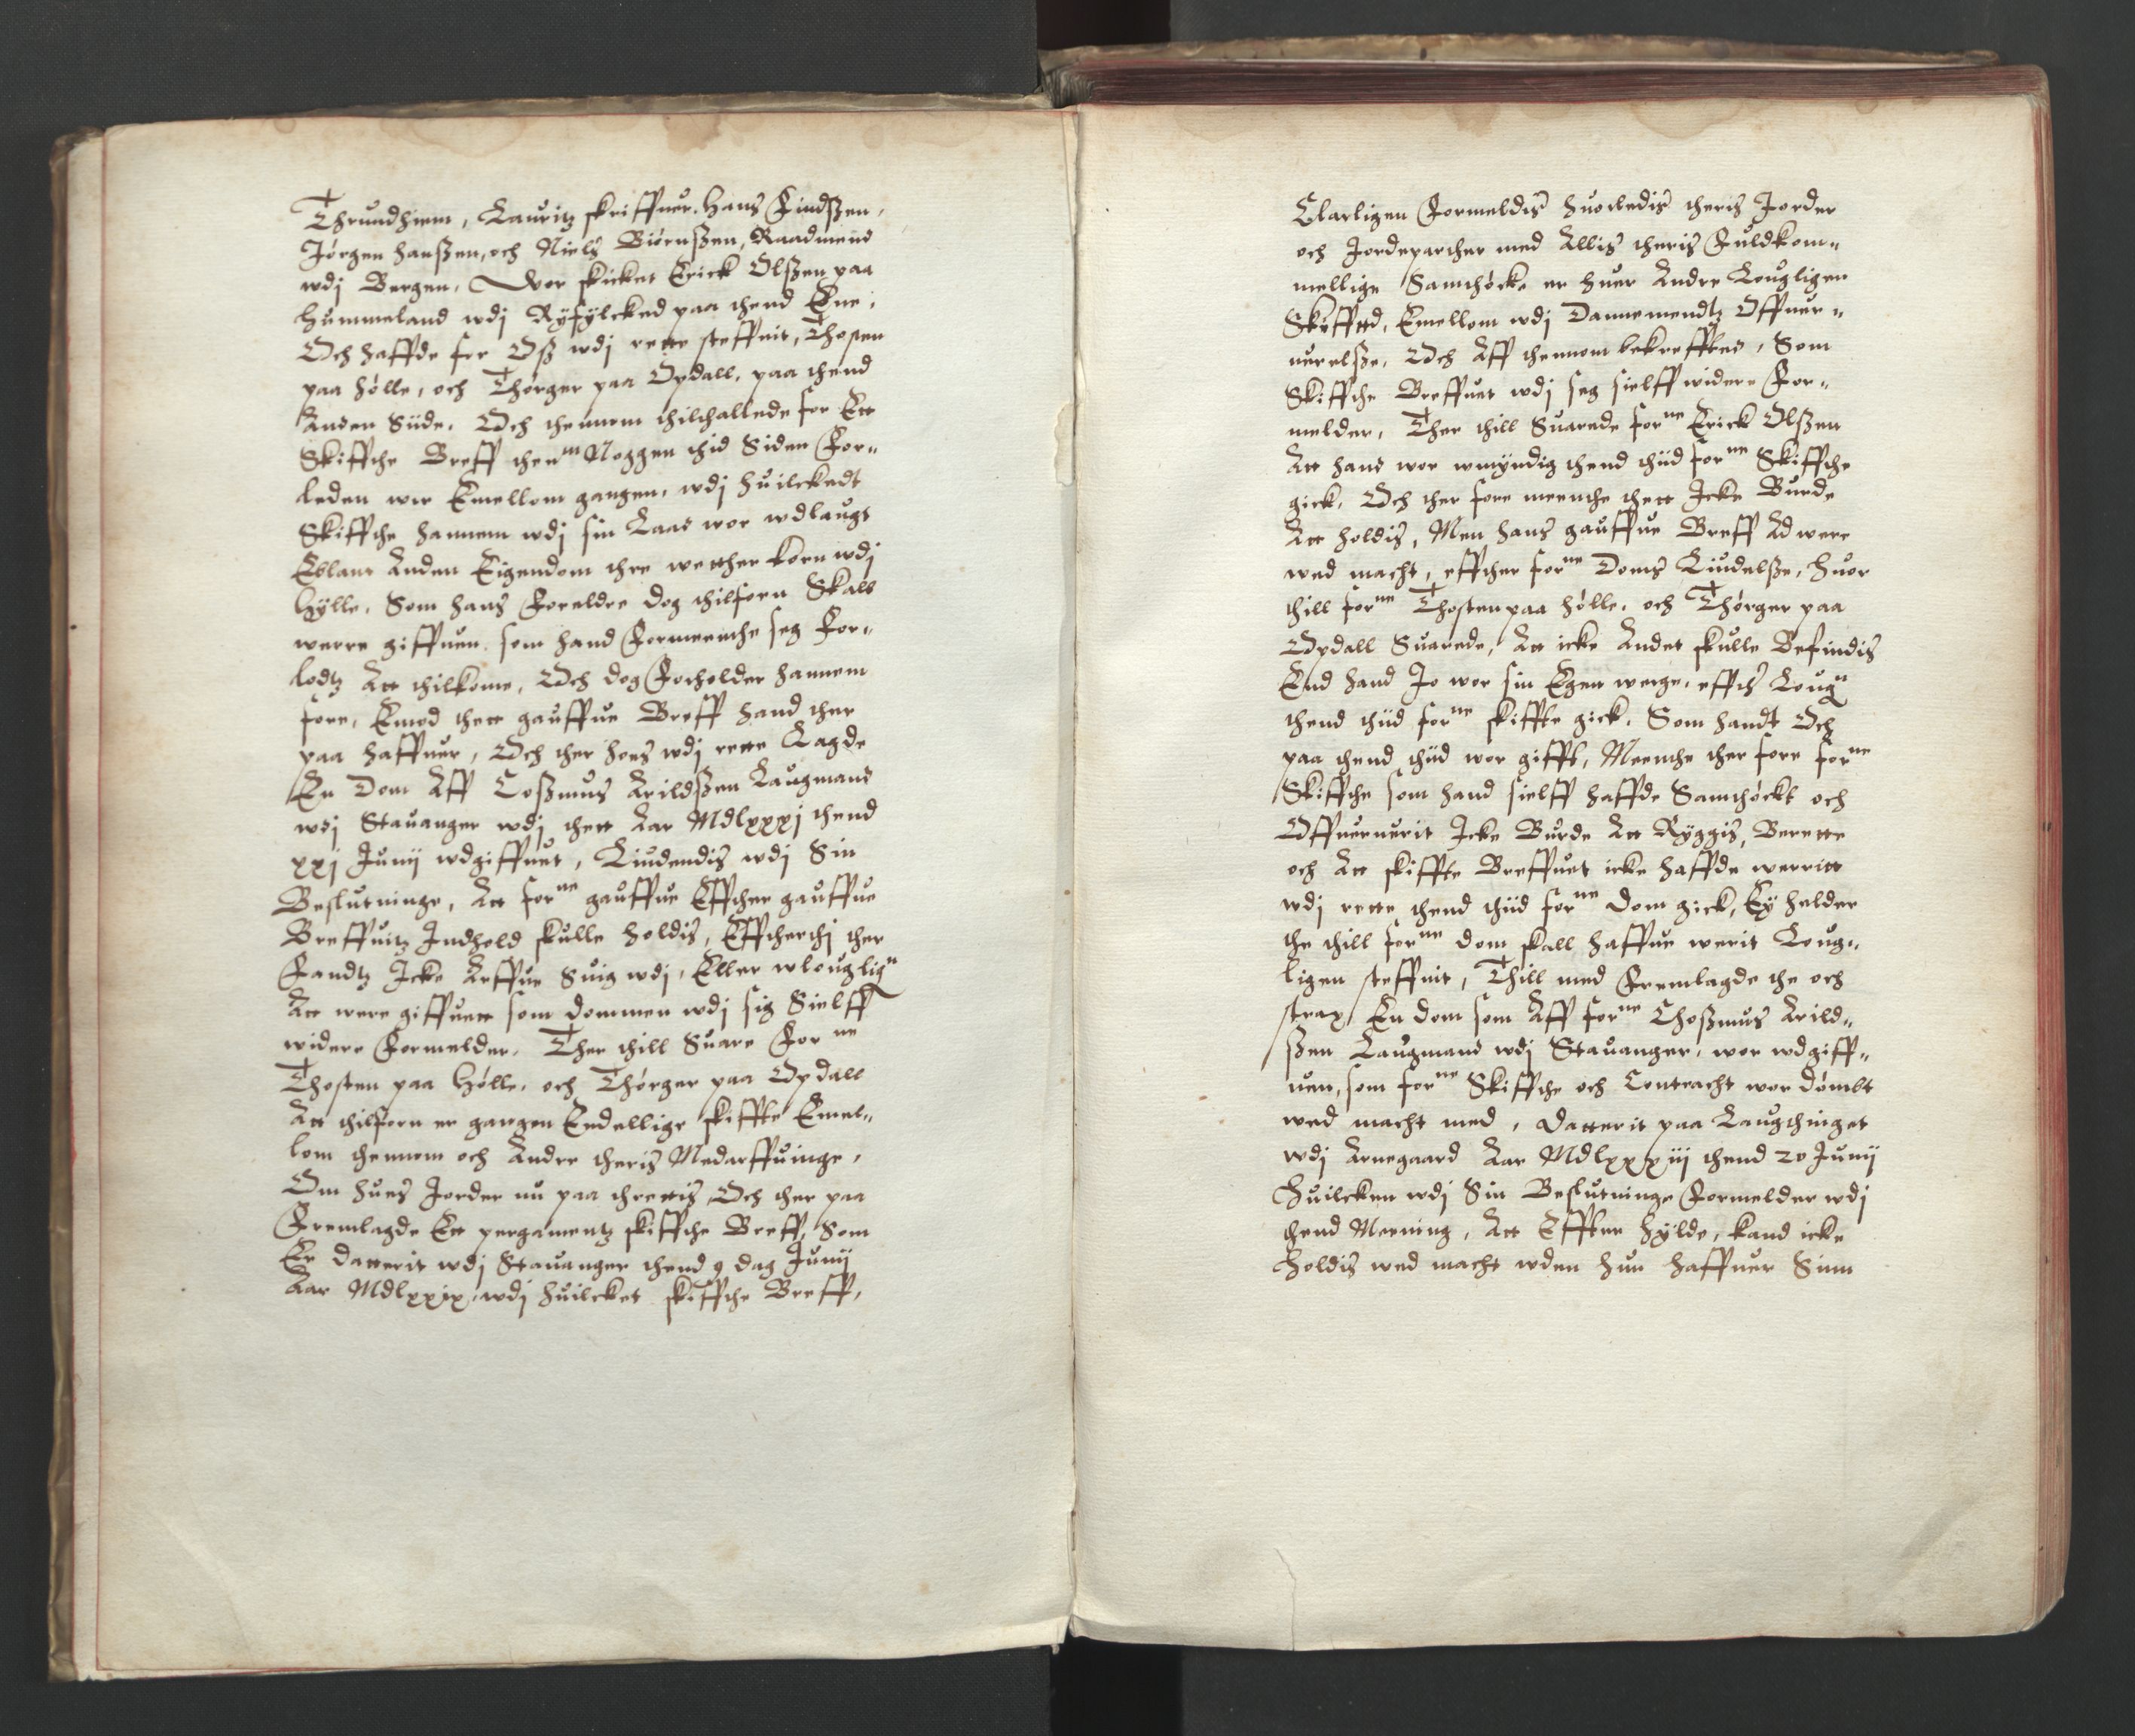 Thrundhiem, Lauritz skriffuer, Hans Findßen,
Jórgen hanßen, och Niels Biórnßen, Raadmend
wdj Bergen, Wor skicket Erick Olßen paa
hummeland wdj Ryfylcked paa thend Ene,
Och haffde for Oß wdj rette steffnit, Thosten
paa hólle, och Thórger paa Opdall, paa thend
Anden Siide, Och thennem thilthallede for Ett
Skiffthe Breff thenn Noggen thid Siden For„
leden wor Emellom gangen, wdj huilckedt
Skiffthe hannem wdj sin Laad wor wdlaugt
Eblant Anden Eigendom thre wetther korn wdj
Hylle, Som hans Foreldre dog thilforn Skall
werre giffuen, som hand Formeenthe seg For„
lodtz Att thilkome, Och dog Forholder hannem
fore, Emod thett gauffue Breff hand ther
paa haffuer, Och ther hoes wdj rette Lagde
En Dom Aff Coßmus Arildßen Laugmand
wdj Stauanger wdj thett Aar Mdlxxxj thend
xxj Junij wdgiffuet, Liudendis wdj Sin
Beslutninge, Att forne gauffue Effther gauffue
Breffuitz Indhold skulle holdis, Efftherthj ther
Fandtz Icke Arffue Suig wdj, Eller wlougligen
Att were giffuett som dommen wdj sig Sielff
widere Formelder, Ther thill Suare Forne
Thosten paa Hólle, och Thórger paa Opdall
Att thilforn er gangen Endellige skiffte Emel„
lom thennom och Andre theris Medarffuinge,
Om hues Jorder nu paa threttis, Och ther paa
Fremlagde Ett pergamentz skiffthe Breff, Som
Er datterit wdj Stauanger thend 9 dag Junij
Aar Mdlxxix, wdj huilcket skiffthe Breff,
Clarligen Formeldis huorledis theris Jorder
och Jordeparther med Allis theris Fuldkom„
mellige Samthócke er huer Andre Lougligen
Skyfftd, Emellom wdj Dannemendtz Offuer„
uerelße, Och Aff thennom bekrefftted, Som
Skiffthe Breffuet wdj seg sielff widere For„
melder, Ther thill Suarede forne Erick Olßen
Att hand wor wmyndig thend thiid forne Skiffthe
gick, Och ther fore meenthe thett Icke Burde
Att holdis, Men hans gauffue Breff Ad were
wed macht, effther forne Doms Liudelße, huor
thill forne Thosten paa hólle, och Thórger paa
Opdall Suarede, Att icke Andet skulle Befindis
End hand Jo wor sin Egen werge, effther Lougen
thend thiid forne skiffte gick, Som handt Och
paa thend thiid wor gifft, Meenthe ther fore forne
Skiffthe som hand sielff haffde Samthóckt och
Offueruerit Icke Burde Att Ryggis, Berette
och Att skiffte Breffuet icke haffde werritt
wdj rette thend thiid forne Dom gick, Ey helder
the thill forne dom skall haffue werit Loug„
ligen steffnit, Thill med Fremlagde the och
strax En dom som Aff forne Thoßmus Arild„
ßen Laugmand wdj Stauanger, wor wdgiff„
uen, som forne Skiffthe och Contracht wor dómbt
wed macht med, Datterit paa Laugthinget
wdj Arnegaard Aar Mdlxxxiij thend 20 Junij
Huilcken wdj Sin Beslutninge Formelder wdj
thend Meening, Att Efftter hylde, kand icke
holdis wed macht wden hun haffuer Sinn